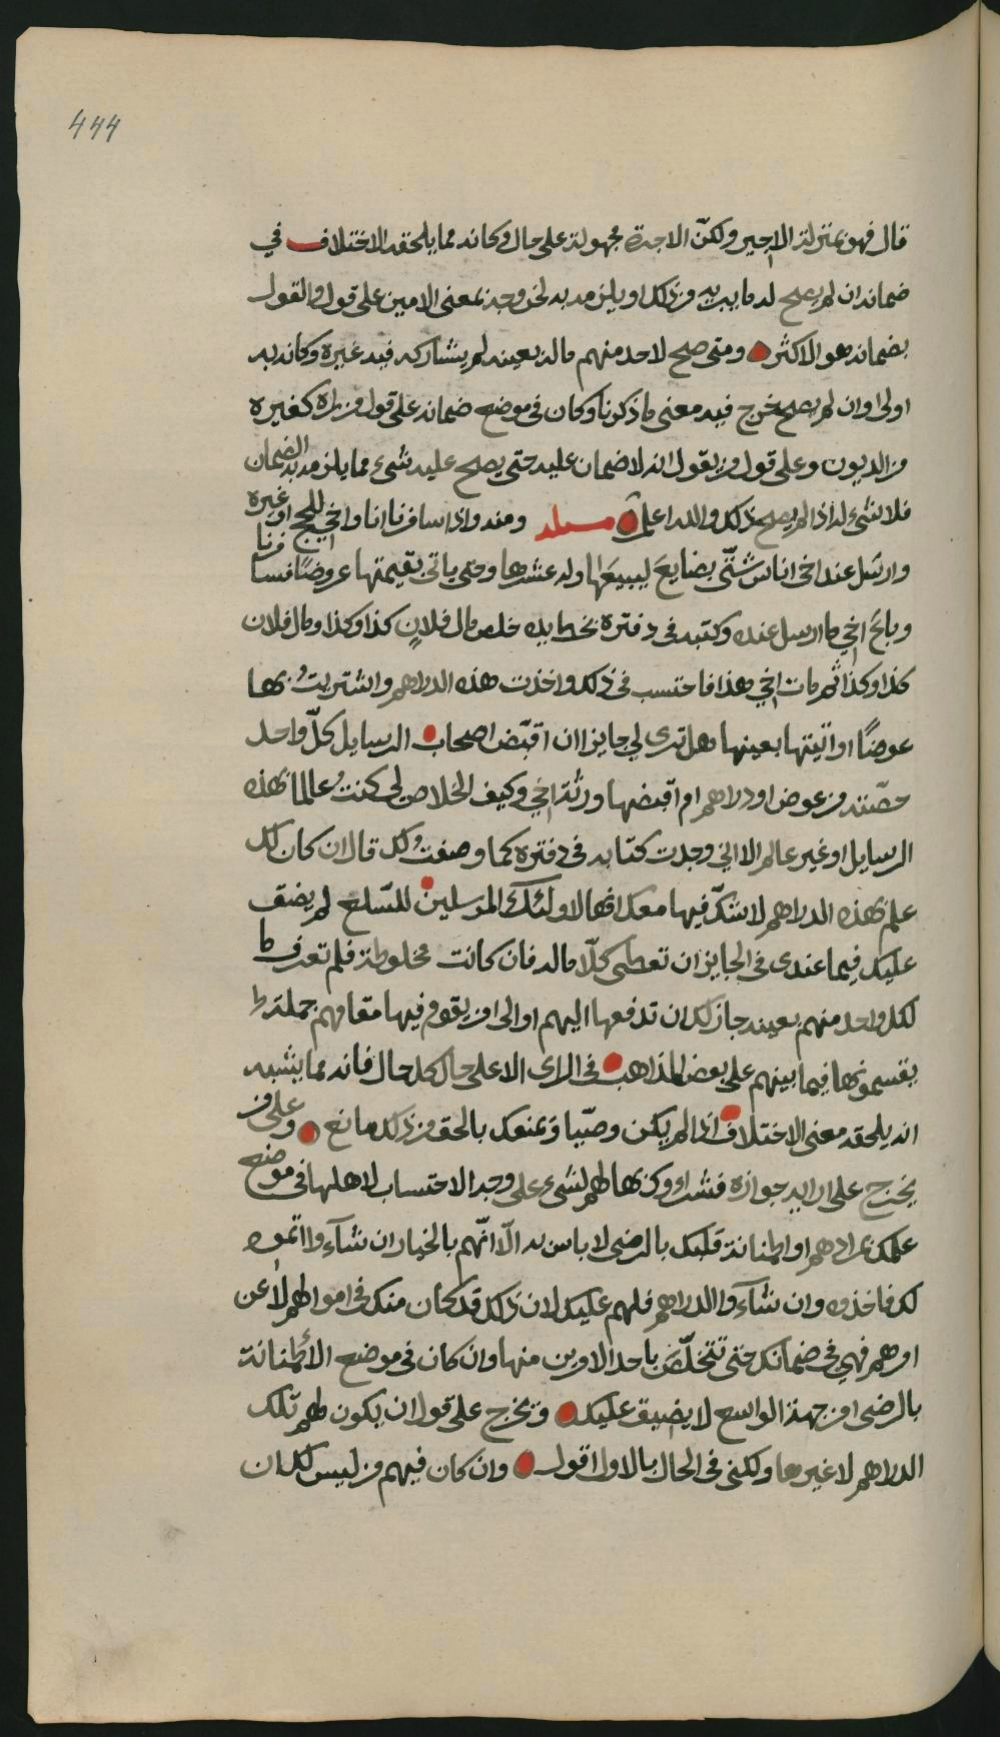 444
قال فهو بمنزلة الاجير ولكنّ الاجرة مجهولة على حال وكانه مما يلحقه الاختلاف في
ضمانه ان لم يصح له ما يبريه من ذلك او يلزمه به لخروجه بمعنى الامين على قول والقول
بضمانه هو الاكثر ومتى صح لاحد منهم ماله بعينه لم يشاركه فيه غيره وكانه به
اولى او ان لم يصح خرج فيه معنى ما ذكرنا وكان في موضع ضمانه على قول من راه كغيره
من الديون وعلى قول من يقول انه لا ضمان عليه حتى يصح عليه شيء مما يلزمه به الضمان
فلا شيء له اذا لم يصح ذلك والله اعلم مسئلة ومنه واذا سافرنا انا واخي للحج او غيره
وارسل عند اخي اناس شتّى بضايع ليبيعها وله عشرها وحتى ياتي بقيمتها عروضًا فسافرنا
وباع اخي ما ارسل عنده وكتبه في دفتره بخط يده خلص مال فلانٍ كذا وكذا ومال فلان
كذا وكذا ثم مات اخي هذا فاحتسب في ذلك واخذت هذه الدراهم واشتريتُ بها
عوضًا او اتيتها بعينها هل ترى لي جايزا ان اقبّض اصحاب الرسايل كلّ واحد
حصّته من عوض او دراهم ام اقبضها ورثة اخي وكيف الخلاص لي كنتُ عالما بهذه
الرسايل او غير عالم الا اني وجدت كتابه في دفتره كما وصفتُ لك قال ان كان لك
علم بهذه الدراهم لا شكّ فيها معك انها لاولئك المرسلين للسّلع لم يضق
عليك فيما عندي في الجايز ان تعطي كلّا ماله فان كانت مخلوطة فلم تعرف ما
لكل واحد منهم بعينه جاز لك ان تدفعها اليهم او الى من يقوم فيها مقامهم جملة
يقسمونها فيما بينهم على بعض المذاهب في الراى الا على حال كل حال فانه مما يشبه
انه يلحقه معنى الاختلاف اذا لم يكن وصيّا ويمنعك بالحق من ذلك مانع وعلى من
يخرج على راي جوازه فشراوك بها لهم لشيء على وجه الاحتساب لاهلها في موضع
علمك بمرادهم او اطمئنانة قلبك بالرضى لا باس به الّا انّهم بالخيار ان شآءوا اتموه
لك فاخذوه وان شآءوا الدراهم فلهم عليك لان ذلك قد كان منك في اموالهم لا عن
امرهم فهي في ضمانك حتى تتخلّص باحد الامرين منها وان كان في موضع الاطمئنانة
بالرضى او من جهة الواسع لا يضيق عليك ويخرج على قول ان يكون لهم تلك
الدراهم لا غيرها ولكني في الحال بالاول اقول وان كان فيهم من ليس لك ان